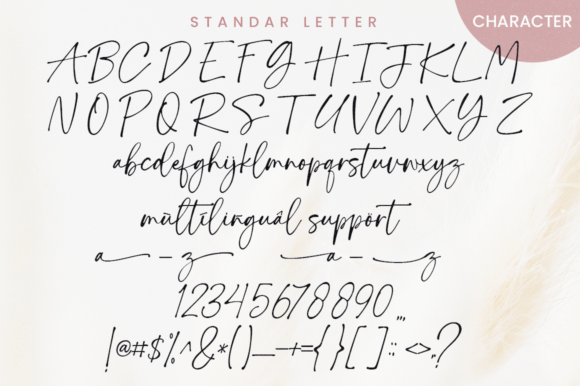 STANDAR LETTER
CHARACTER
ABCDEFGHIJKLM
NOPQRSTUVWXYZ
abcdefghijklmnopqrstuvwxyz
mùltïlingüâl suppört
a — z a — z
1234567890,,,
!@#$%^&*()_—+={}[]:: <>,.?